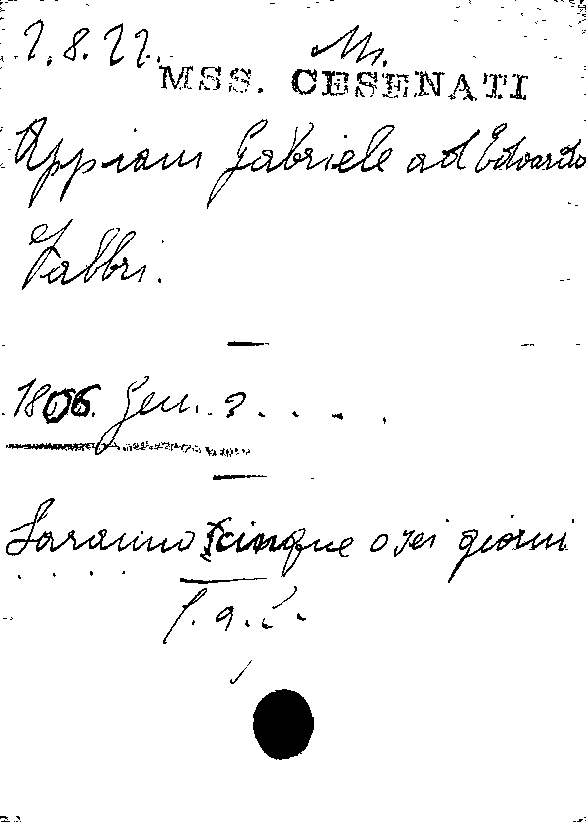 2.8.22. Ms.
MSS. CESENATI
Appiani Gabriele ad Edoardo
Fabbri.
1806. Gen. ? . . . .
Saranno cinque o sei giorni
. . . .